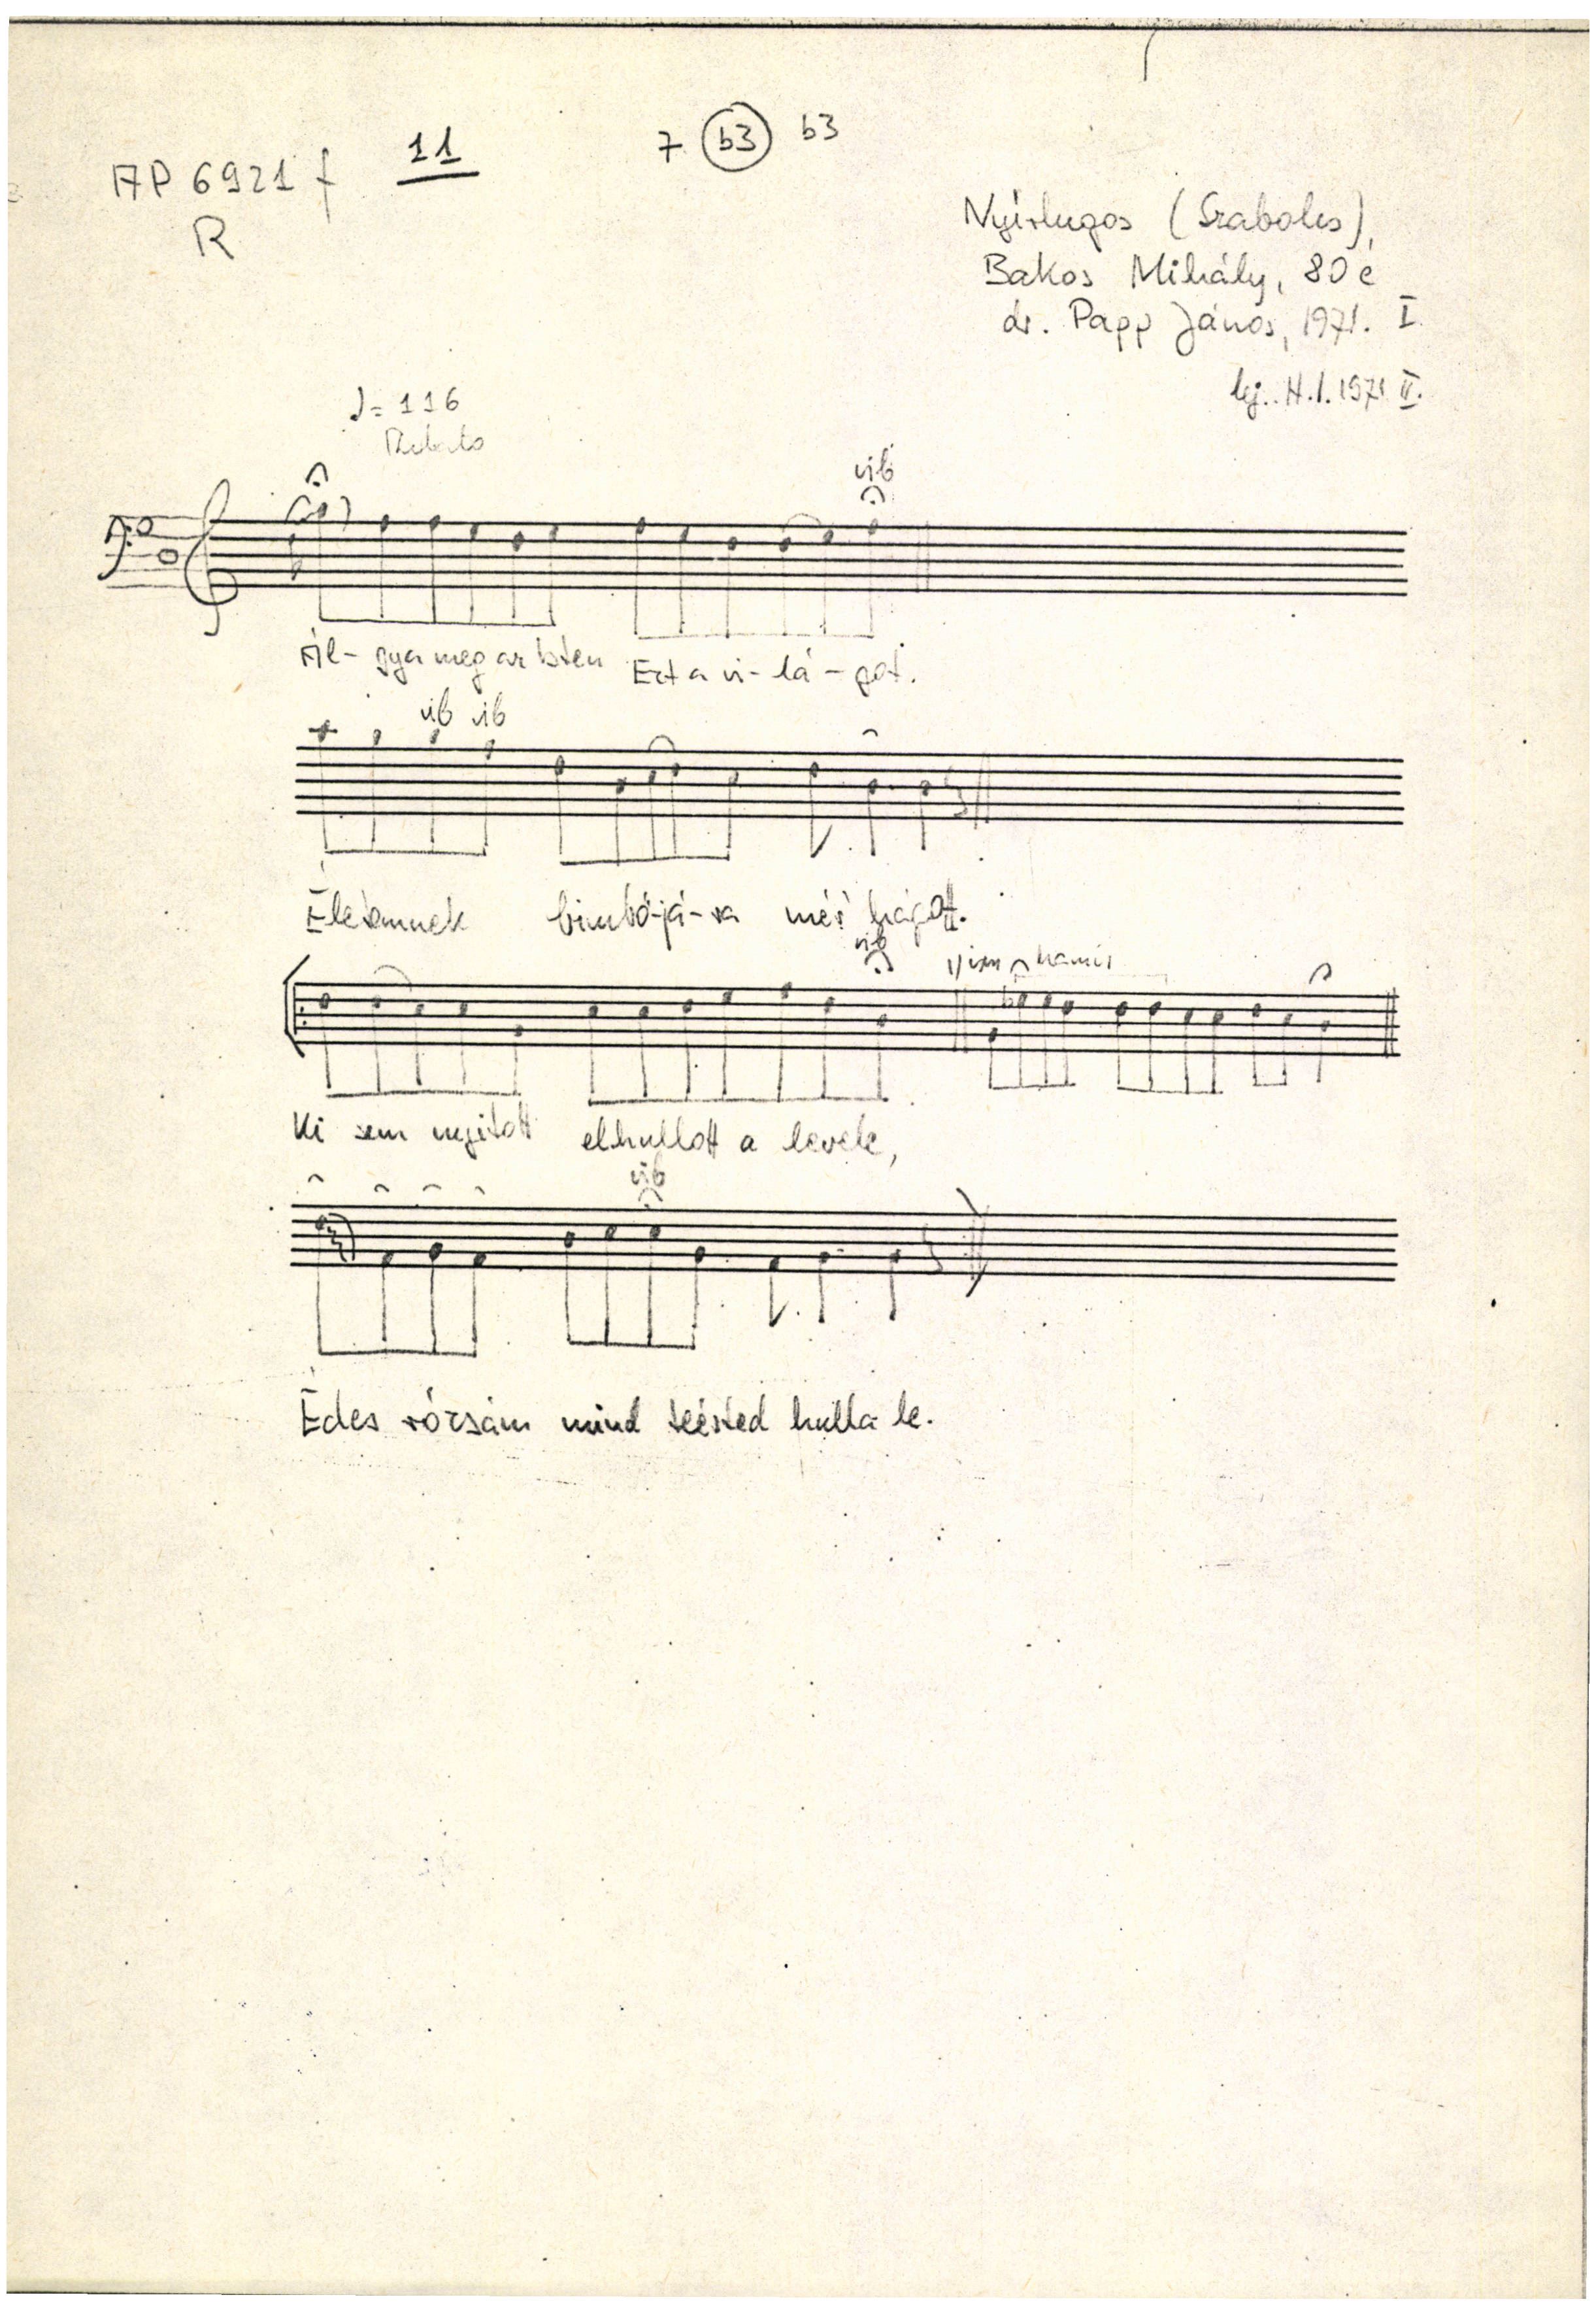 11
7 b3 b3
AP 6921 f
R
Nyírlugos (Szabolcs),
Bakos Mihály, 80 é
dr. Papp János, 1971. I.
lej. H. I. 1971 II.
♩= 116
Rubato
vib
Ál- gya meg az Isten Ezt a vi- lá - got.
vib vib
Életemnek bimbó-já-ra
vib
hamis
Ki sem nyitott elhullott a levele,
vib
Édes rózsám mind teésted hulla le.